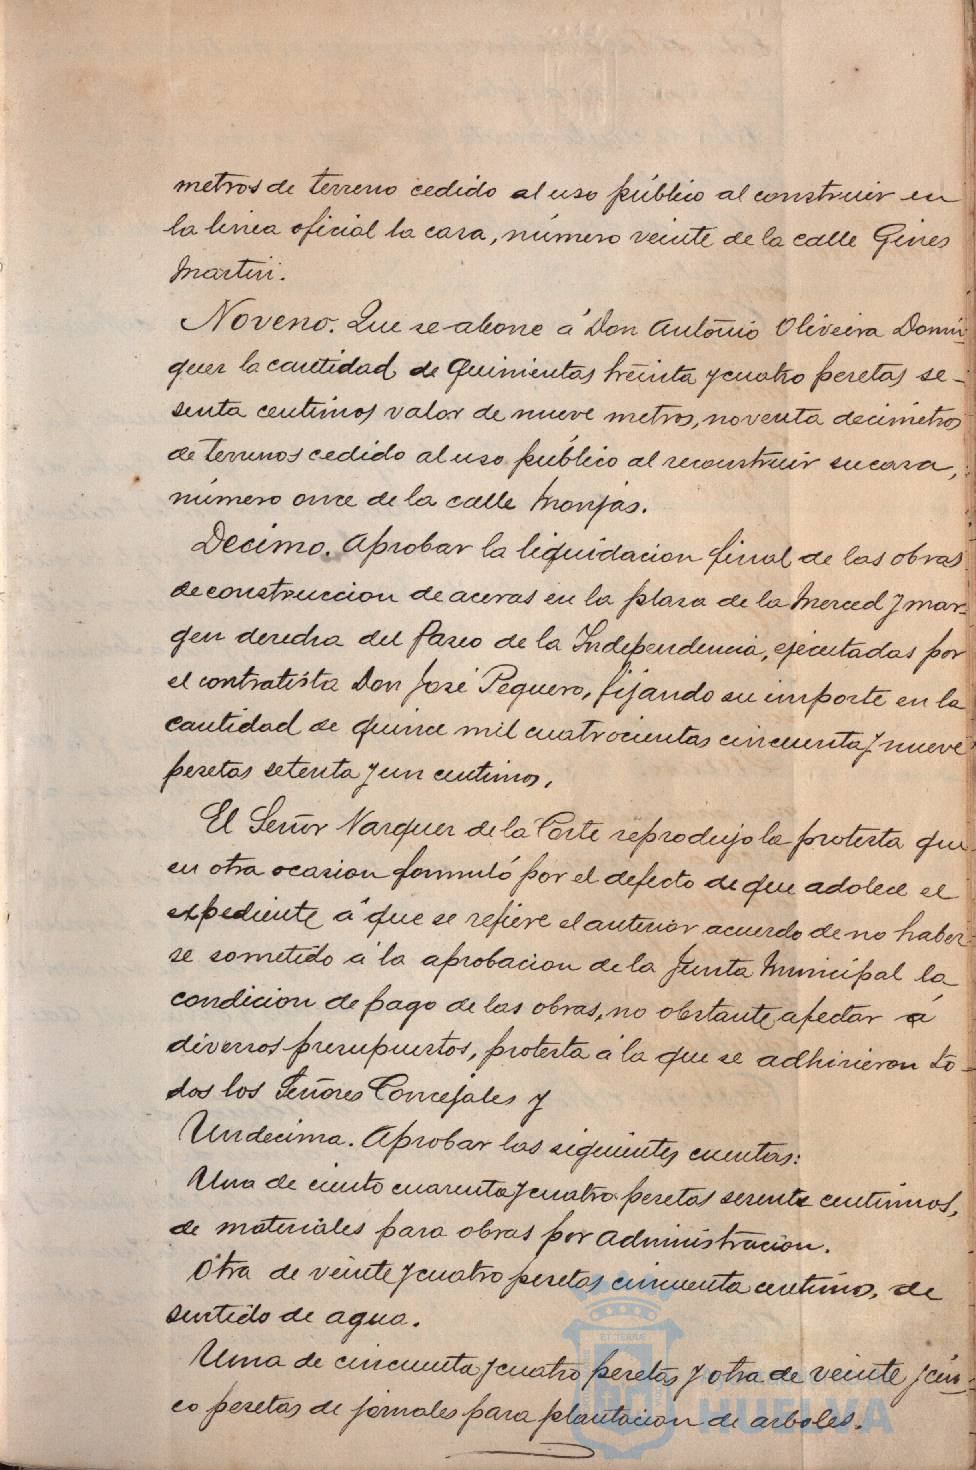 metros de terreno cedido al uso público al construir en
la linea oficial la casa, número veinte de la calle Gines
Martin.
Noveno. Que se abone á Don Antonio Oliveira Domin-
guez la cantidad de Quinientas treinta y cuatro pesetas se-
senta centimos valor de nueve metros, noventa decimetros
de terrenos cedido al uso público al reconstruir su casa,
número once de la calle Monjas.
Decimo. Aprobar la liquidacion final de las obras
de construccion de aceras en la plaza de la Merced y mar-
gen derecha del Paseo de la Independencia, ejecutadas por
el contratista Don José Peguero, fijando su importe en la
cantidad de quince mil cuatrocientas cincuenta y nueve
pesetas setenta y un centimos.
El Señor Vazquez de la Corte reprodujo la protesta que
en otra ocasion formuló por el defecto de que adolece el
expediente á que se refiere el anterior acuerdo de no haber-
se sometido á la aprobacion de la Junta Municipal la
condicion de pago de las obras, no obstante afectar á
diversos presupuestos, protesta á la que se adhirieron to-
dos los Señores Concejales y
Undecima. Aprobar las siguientes cuentas:
Una de ciento cuarenta y cuatro pesetas sesenta centimos,
de materiales para obras por administracion.
Otra de veinte y cuatro pesetas cincuenta centimos, de
surtido de agua.
Una de cincuenta y cuatro pesetas y otra de veinte y cin-
co pesetas de jornales para plantacion de arboles.
HUELVA